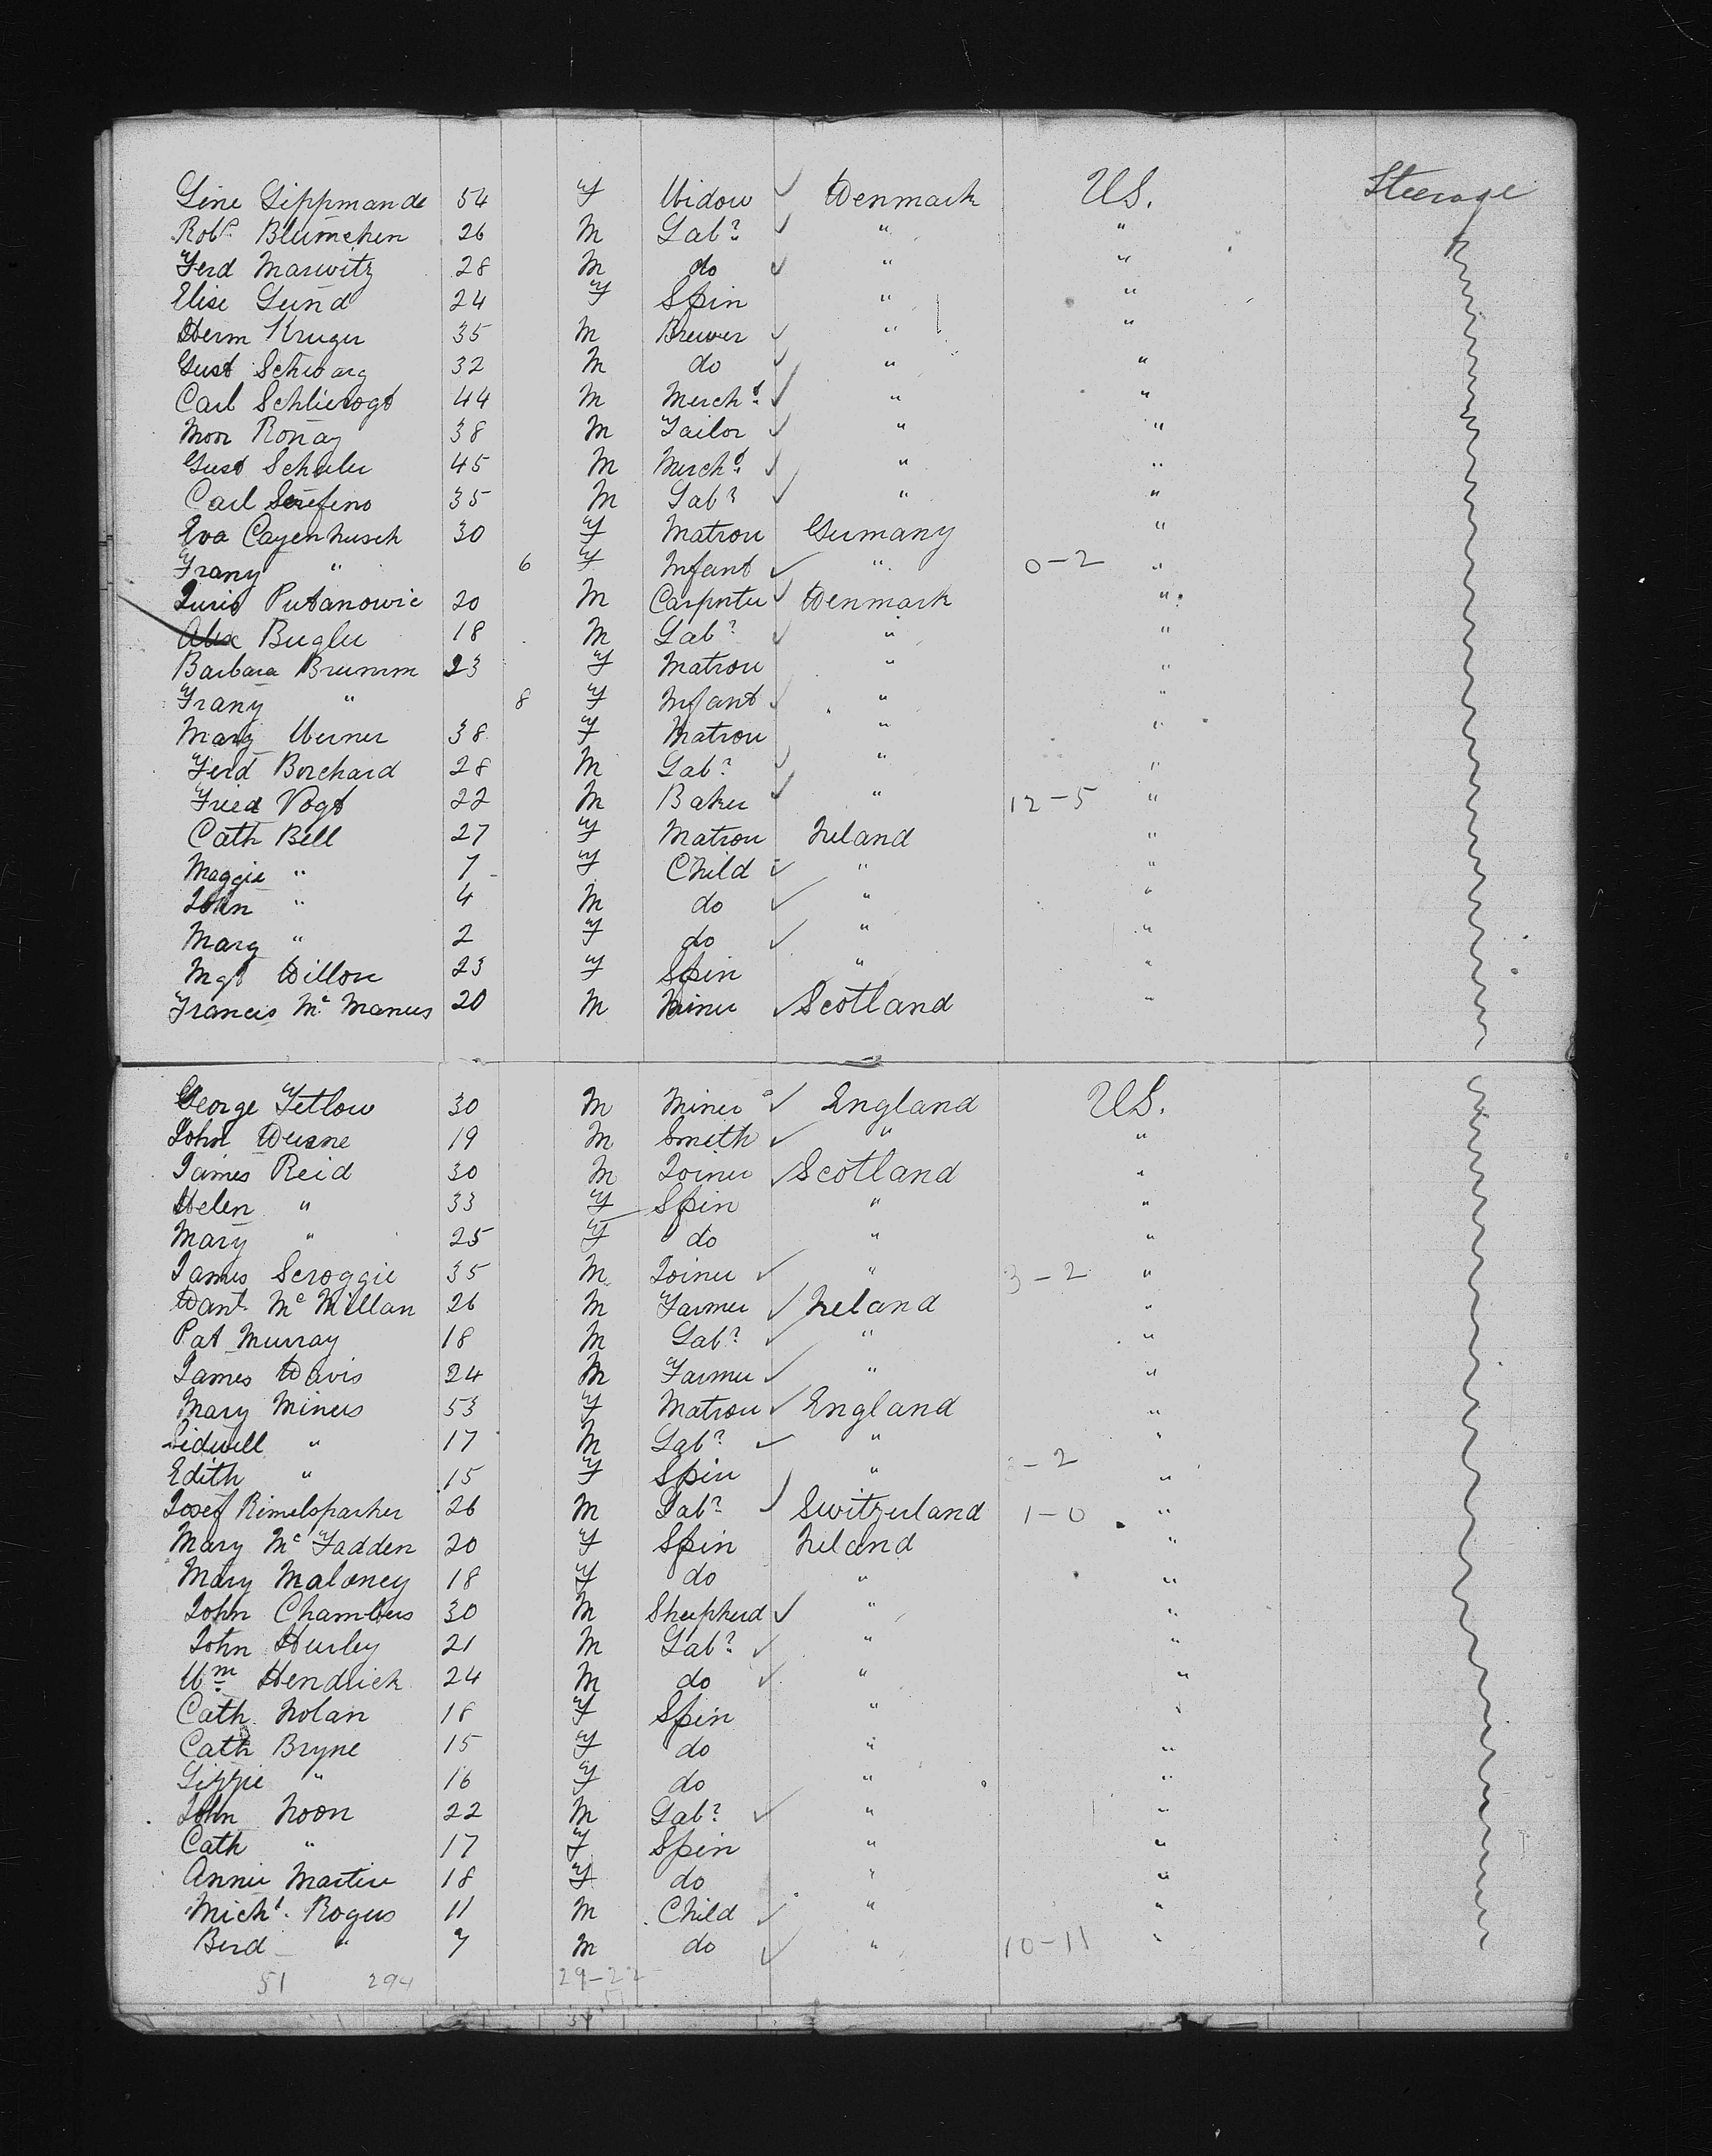 Line Lippmande 54 F Widow ✓ Denmark U.S. Steerage
Robt. Blumchen 26 M Labr ✓ " "
Ferd Marwitz 28 M do ✓ " "
Elise Lund 24 F Spin " "
Herm Kruger 35 M Brewer ✓ " "
Gust Schwarz 32 M do ✓ " "
Carl Schlierogt 44 M Mercht ✓ " "
Mor Ronay 38 M Tailor ✓ " "
Gust Schuler 45 M Mercht ✓ " "
Carl Serefino 35 M Labr ✓ " "
Eva Cayenhusch 30 F Matron Germany "
Franz " 6 F Infant ✓ " 0-2 "
Putanowic 20 M Carpnter ✓ Denmark "
Alex Bugler 18 M Labr ✓ " "
Barbara Brumm 23 F Matron " "
Franz " 8 F Infant ✓ " "
Marg Werner 38 F Matron " "
Ferd Borchard 28 M Labr ✓ " "
Fried Vogt 22 M Baker ✓ " 12-5 "
Cath Bell 27 F Matron Ireland "
Maggie " 7 F Child ✓ " "
John " 4 M do ✓ " "
Marg " 2 F do ✓ " "
Mgt Dillon 23 F Spin " "
Francis Mc Manus 20 M Miner ✓ Scotland "
George Tetlow 30 M Miner ✓ England U.S.
John Dusne 19 M Smith ✓ " "
James Reid 30 M Joiner ✓ Scotland "
Helen " 33 F Spin " "
Mary " 25 F do " "
James Scroggie 35 M Joiner ✓ " 3-2 "
Danl Mc Millan 26 M Farmer ✓ Ireland "
Pat Murray 18 M Labr ✓ " "
James Davis 24 M Farmer ✓ " "
Mary Miners 53 F Matron ✓ England "
Sidwell " 17 M Labr ✓ " "
Edith " 15 F Spin " -2 "
Josef Rimelsparher 26 M Labr ✓ Switzerland 1-0 "
Mary Mc Fadden 20 F Spin Ireland "
Mary Maloney 18 F do " "
John Chambers 30 M Shepherd ✓ " "
John Hurley 21 M Labr ✓ " "
Wm Hendrick 24 M do ✓ " "
Cath Nolan 18 F Spin " "
Cath Bryne 15 F do " "
Lizzie " 16 F do " "
John Noon 22 M Labr ✓ " "
Cath " 17 F Spin " "
Annie Martin 18 F do " "
Michl. Rogers 11 M Child ✓ " "
Berd " 7 M do ✓ " 10-11 "
51 294 29-22
51